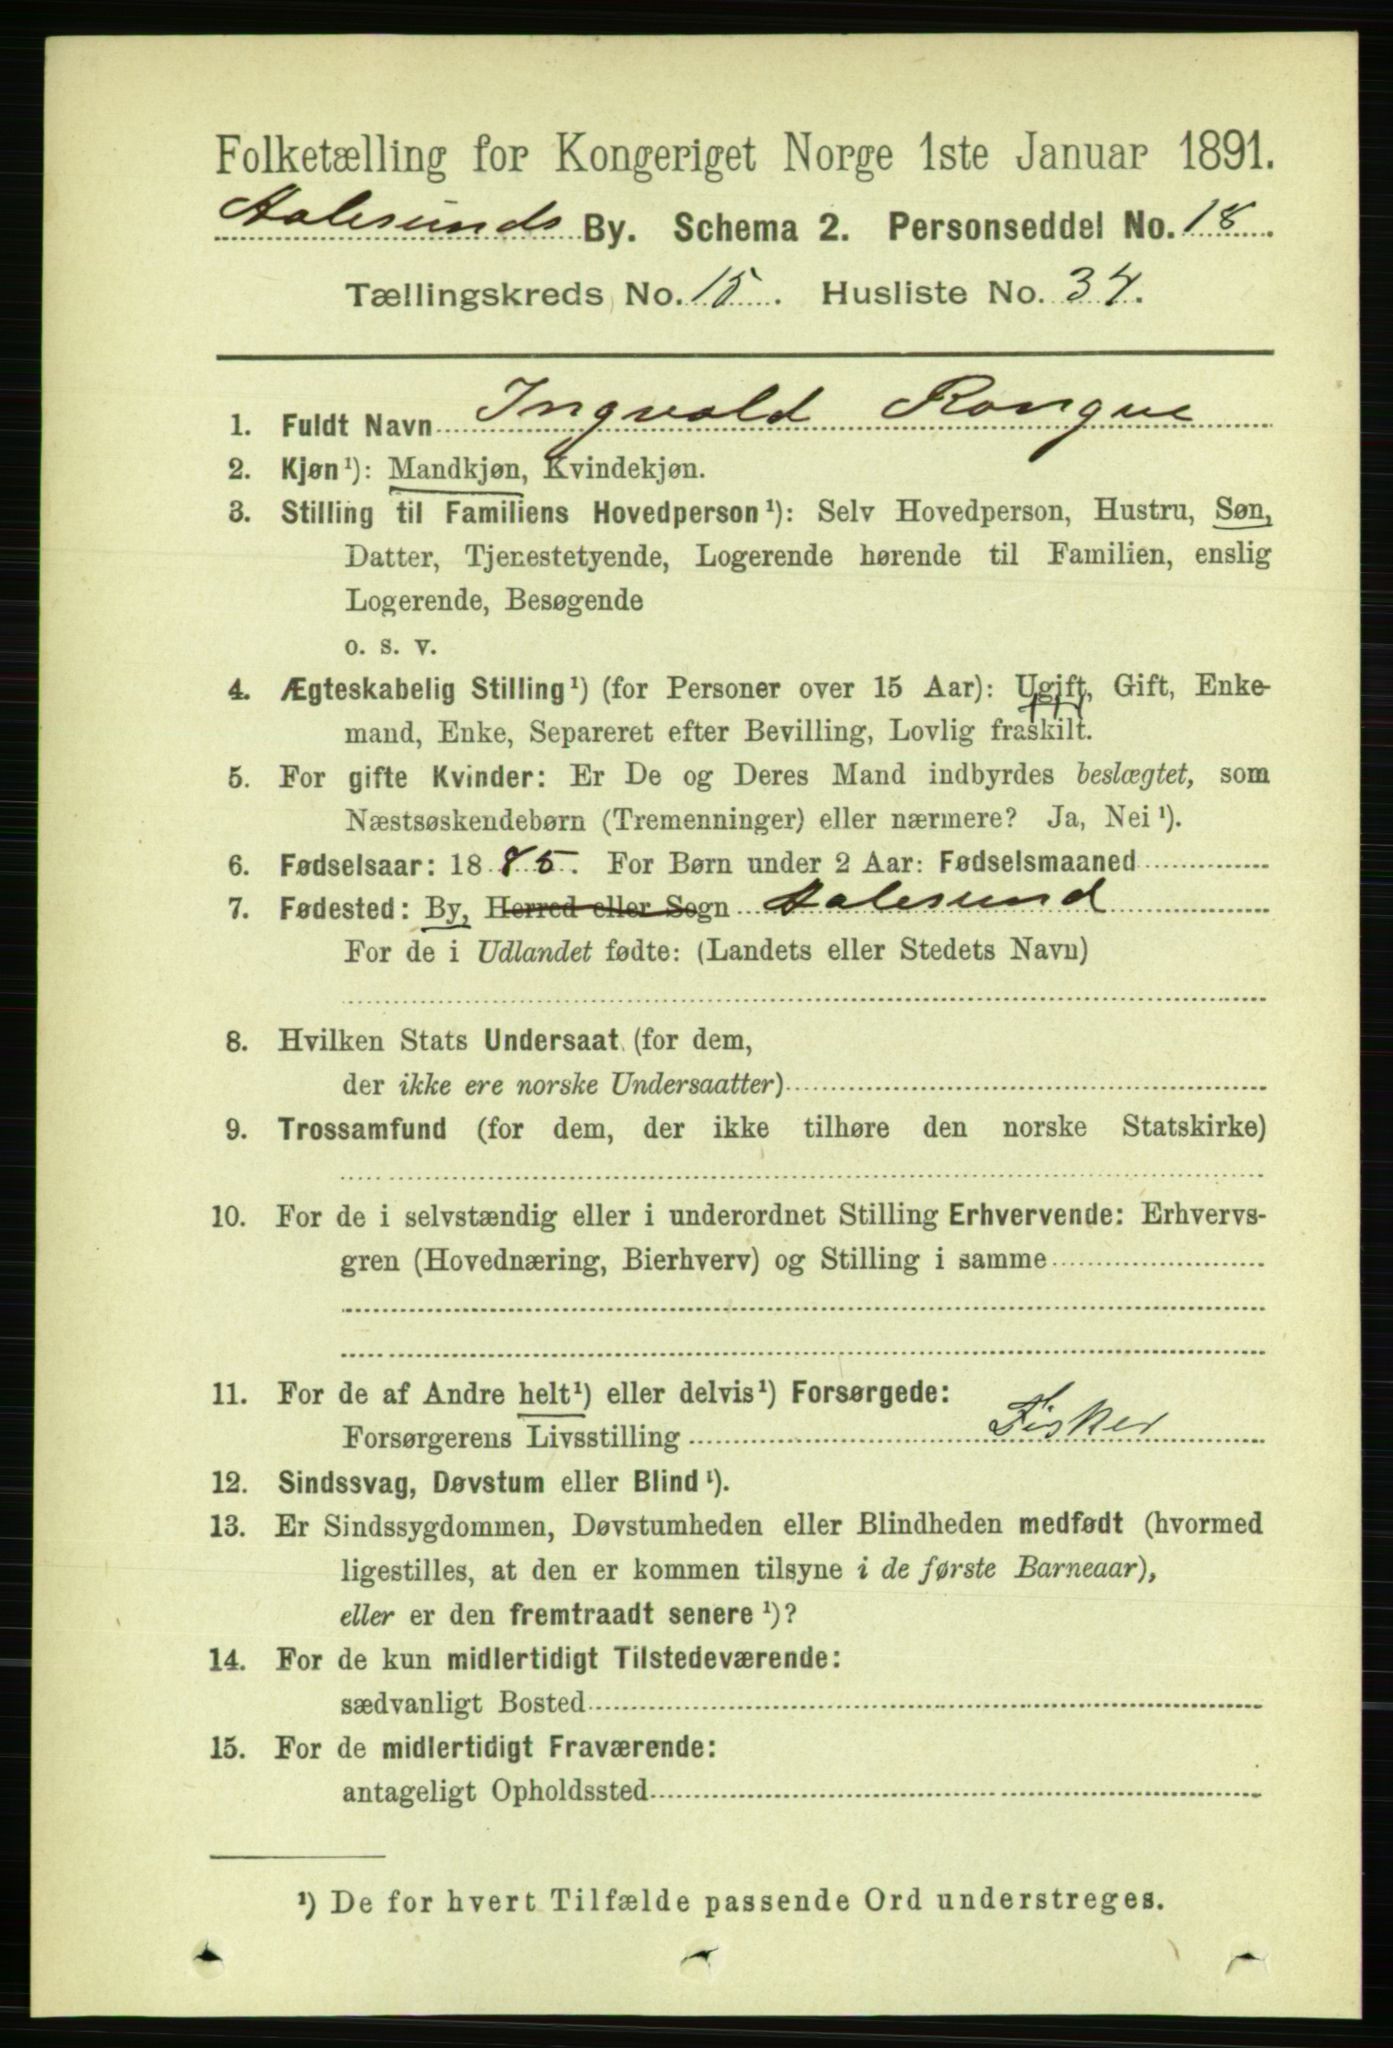 Folketælling for Kongeriget Norge 1ste Januar 1891.
Aalesunds By. Schema 2. Personseddel No. 18.
Tællingskreds No. 15. Husliste No. 34.
1. Fuldt Navn Ingvald Rongve
2. Kjøn¹): Mandkjøn, Kvindekjøn.
3. Stilling til Familiens Hovedperson¹): Selv Hovedperson, Hustru, Søn,
Datter, Tjenestetyende, Logerende hørende til Familien, enslig
Logerende, Besøgende
o. s. v.
4. Ægteskabelig Stilling¹) (for Personer over 15 Aar): Ugift, Gift, Enke-
mand, Enke, Separeret efter Bevilling, Lovlig fraskilt.
5. For gifte Kvinder: Er De og Deres Mand indbyrdes beslægtet, som
Næstsøskendebørn (Tremenninger) eller nærmere? Ja, Nei¹).
6. Fødselsaar: 1885. For Børn under 2 Aar: Fødselsmaaned
7. Fødested: By, Herred eller Sogn Aalesund
For de i Udlandet fødte: (Landets eller Stedets Navn)
8. Hvilken Stats Undersaat (for dem,
der ikke ere norske Undersaatter)
9. Trossamfund (for dem, der ikke tilhøre den norske Statskirke)
10. For de i selvstændig eller i underordnet Stilling Erhvervende: Erhvervs-
gren (Hovednæring, Bierhverv) og Stilling i samme
11. For de af Andre helt¹) eller delvis¹) Forsørgede:
Forsørgerens Livsstilling Fisker
12. Sindssvag, Døvstum eller Blind¹).
13. Er Sindssygdommen, Døvstumheden eller Blindheden medfødt (hvormed
ligestilles, at den er kommen tilsyne i de første Barneaar),
eller er den fremtraadt senere¹)?
14. For de kun midlertidigt Tilstedeværende:
sædvanligt Bosted
15. For de midlertidigt Fraværende:
antageligt Opholdssted
¹) De for hvert Tilfælde passende Ord understreges.